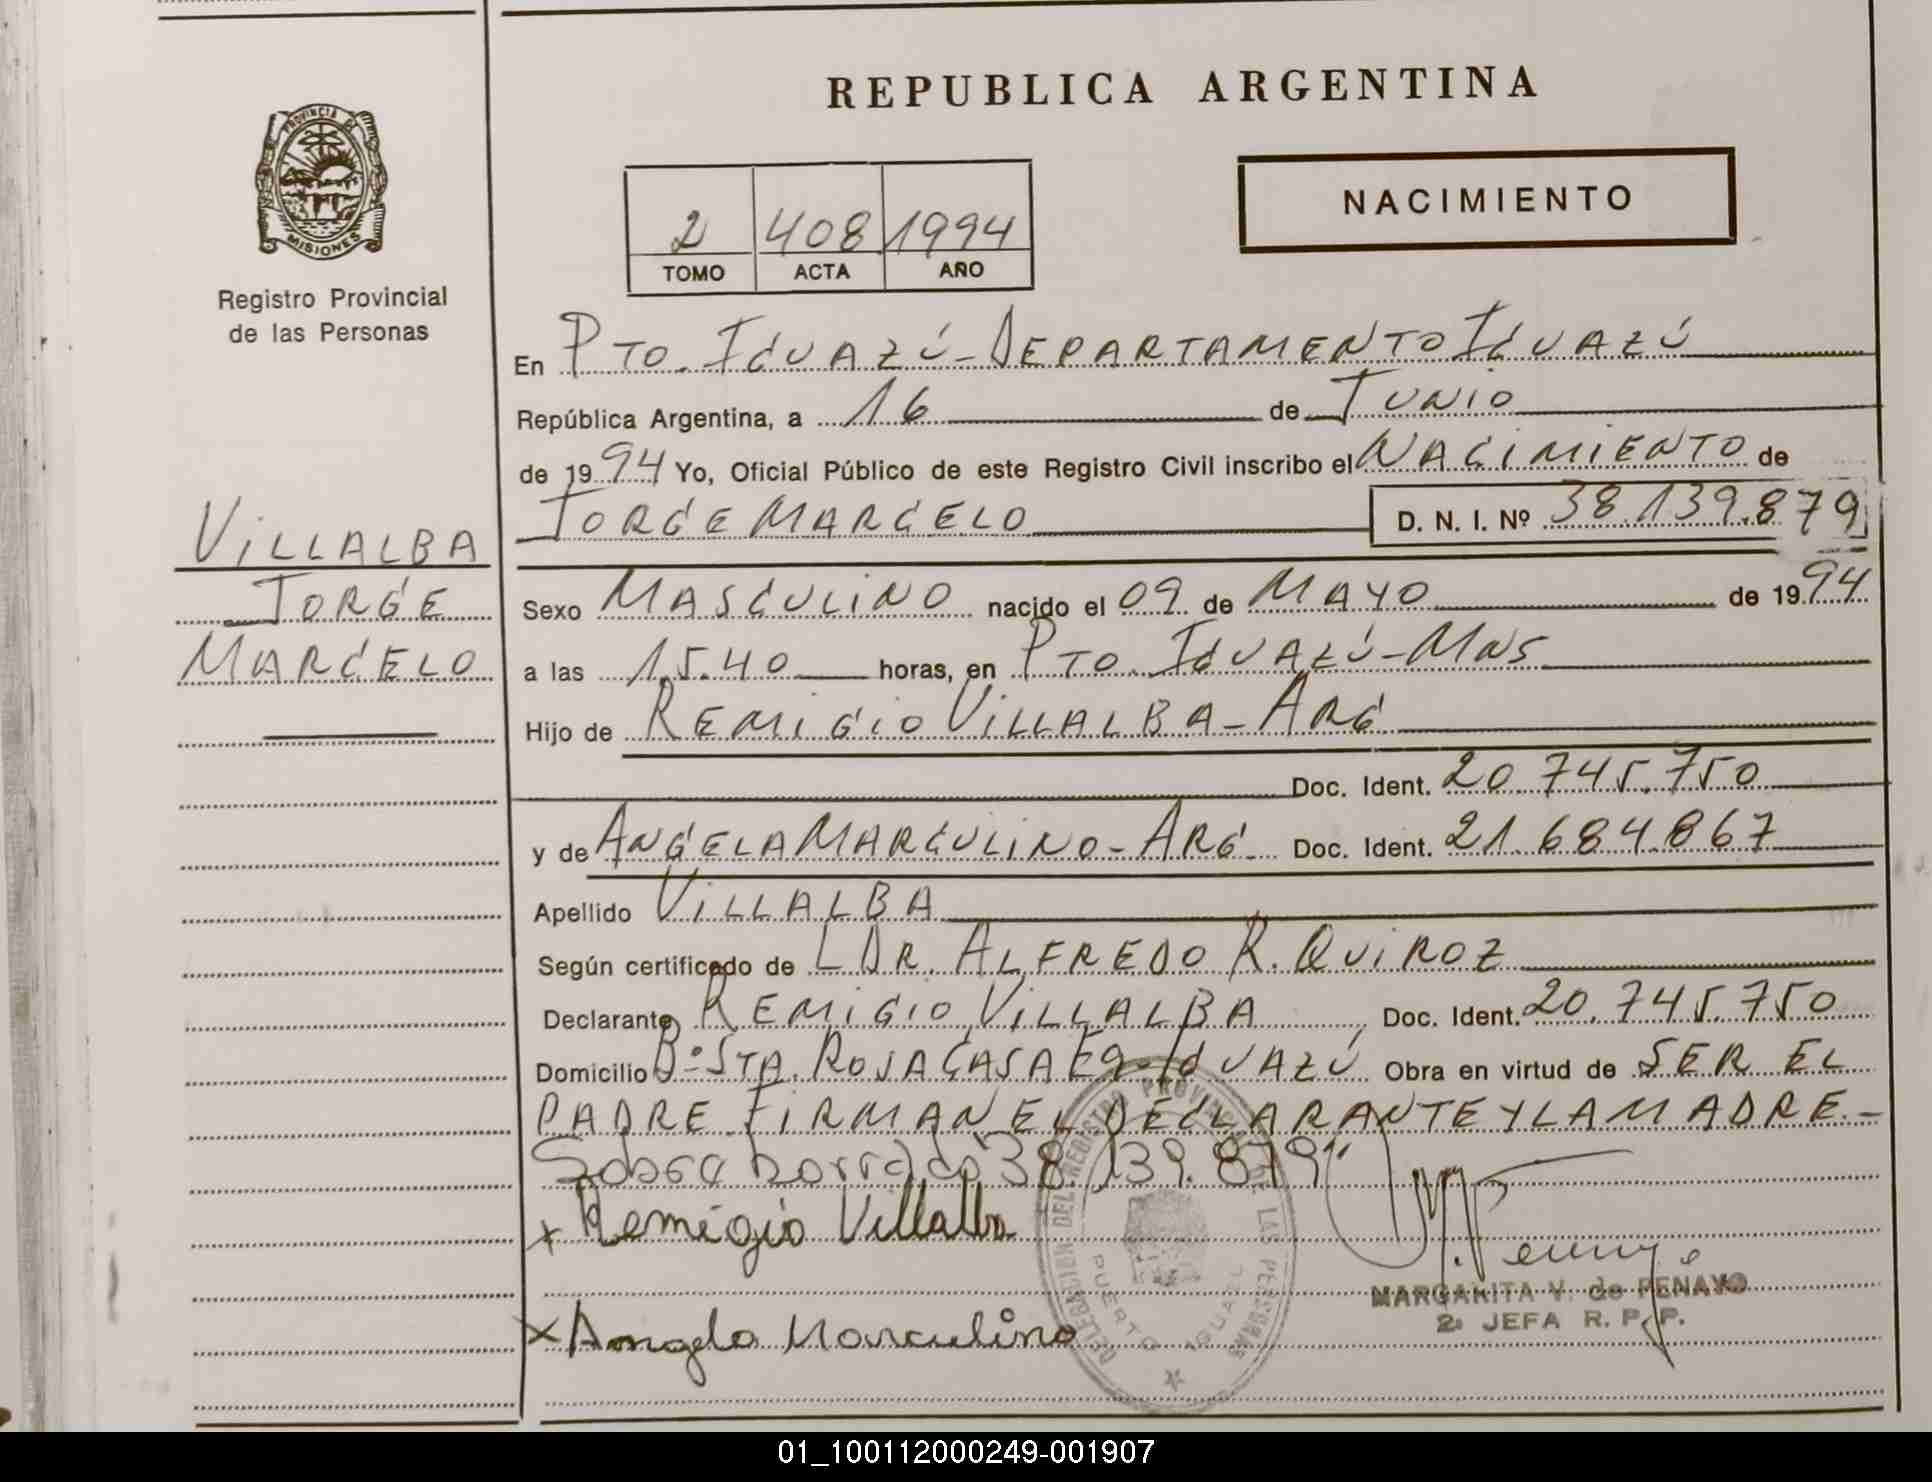 REPUBLICA ARGENTINA
PROVINCIA DE
MISIONES
Registro Provincial
de las Personas
NACIMIENTO
2 408 1994
TOMO ACTA AÑO
En PTO. IGUAZÚ - DEPARTAMENTO IGUAZÚ
República Argentina, a 16 de JUNIO
de 1994 Yo, Oficial Público de este Registro Civil inscribo el NACIMIENTO de
JORGE MARCELO D. N. I. Nº 38.139.879
VILLALBA
JORGE
MARCELO
Sexo MASCULINO nacido el 09 de MAYO de 1994
a las 15.40 horas, en PTO. IGUAZÚ - MNS
Hijo de REMIGIO VILLALBA - ARG
Doc. Ident. 20.745.750
y de ANGELA MARCULINO - ARG Doc. Ident. 21.684.867
Apellido VILLALBA
Según certificado de L DR. ALFREDO R. QUIROZ
Declarante REMIGIO VILLALBA Doc. Ident. 20.745.750
Domicilio Bº STA. ROSA CASA IGUAZÚ Obra en virtud de SER EL
PADRE FIRMAN EL DECLARANTE Y LA MADRE.-
Sobre borrado "38.139.879"
x Remigio Villalba
x Angela Marculino
DELEGACION DEL REGISTRO PROVINCIAL DE LAS PERSONAS
PUERTO IGUAZU
MARGARITA V. de PENAYO
2º JEFA R. P. P.
01_100112000249-001907